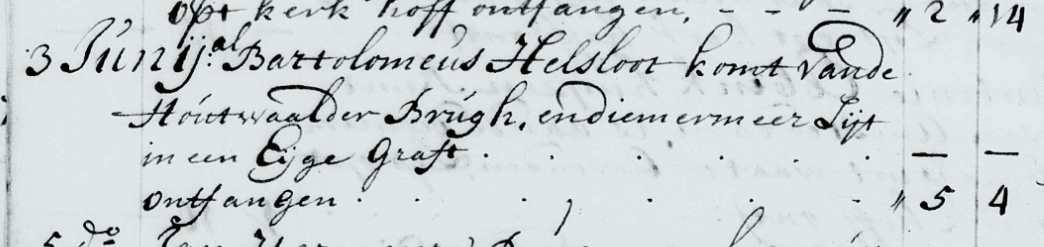 opt kerk hoff ontfangen, - - - " 2 " 14
3 Junij: al Bartolomeus Helsloot komt Vande
Houtwaalder Brugh, endiemermeer Lijt
in een Eijge Graft . . . . . . — —
ontfangen . . . . . " 5 4
5 do